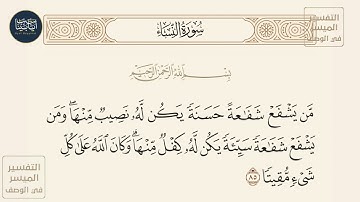 سُورَةُ النِّسَاءِ
التفسير
الميسر
في الوصف
بِسْمِ اللَّهِ الرَّحْمَٰنِ الرَّحِيمِ
مَّن يَشْفَعْ شَفَٰعَةً حَسَنَةً يَكُن لَّهُۥ نَصِيبٌ مِّنْهَا ۖ وَمَن
يَشْفَعْ شَفَٰعَةً سَيِّئَةً يَكُن لَّهُۥ كِفْلٌ مِّنْهَا ۗ وَكَانَ ٱللَّهُ عَلَىٰ كُلِّ
شَىْءٍ مُّقِيتًا ٨٥
التفسير
الميسر
في الوصف